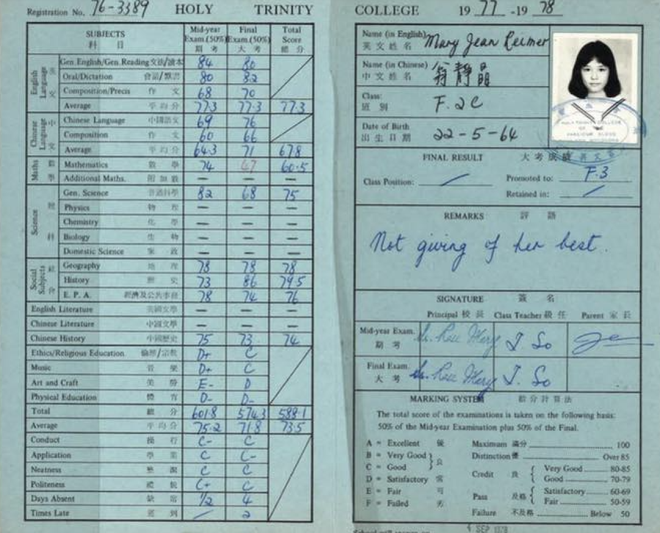 Registration No. 76-3389 HOLY TRINITY COLLEGE 1977-1978
SUBJECTS 科目 Mid-year Exam.(50%) 期考 Final Exam.(50%) 大考 Total Score 總分
English Language 英文
Gen. English/Gen. Reading 84 80
Oral/Dictation 80 82
Composition/Precis 作文 68 70
Average 平均分 77.3 77.3 77.3
Chinese Language 中文
Chinese Language 中國語文 69 76
Composition 作文 60 66
Average 平均分 64.3 71 67.8
Maths 數學
Mathematics 數學 74 47 60.5
Additional Maths. 附加數 — — —
Science 科
Gen. Science 普通科學 82 68 75
Physics 物理 — — —
Chemistry 化學 — — —
Biology 生物 — — —
Domestic Science 家政 — — —
Social Subjects 社會
Geography 地理 78 78 78
History 歷史 73 86 79.5
E. P. A. 經濟及公共事務 78 74 76
English Literature 英國文學 — — —
Chinese Literature 中國文學 — — —
Chinese History 中國歷史 75 73 74
Ethics/Religious Education 倫理/宗教 D+ C
Music 音樂 D+ C
Art and Craft 美勞 E- D
Physical Education 體育 D- D-
Total 總分 601.8 574.3 588.1
Average 平均分 75.2 71.8 73.5
Conduct 操行 C- C-
Application 學業 C C-
Neatness 整潔 C C
Politeness 禮貌 C+ C
Days Absent 缺席 1/2 4
Times Late 遲到 / 2
Name (in English) 英文姓名 Mary Jean Reimer
Name (in Chinese) 中文姓名 翁靜晶
Class: 班別 F.2C
Date of Birth 出生日期 22-5-64
FINAL RESULT 大考成績
Class Position: / Promoted to: F.3
Retained in: /
REMARKS 評語
Not giving of her best.
SIGNATURE 簽名
Principal 校長 Class Teacher 級任 Parent 家長
Mid-year Exam. 期考 J. So
Final Exam. 大考 J. So
MARKING SYSTEM 給分計算法
The total score of the examinations is taken on the following basis:
50% of the Mid-year Examination plus 50% of the Final.
A = Excellent 優 Maximum 滿分 100
B = Very Good 良 Distinction 優 Over 85
C = Good Credit 良 Very Good 80-85
D = Satisfactory 常 Good 70-79
E = Fair 可 Pass 及格 Satisfactory 60-69
F = Failed 劣 Fair 50-59
Failure 不及格 Below 50
SEP 1978